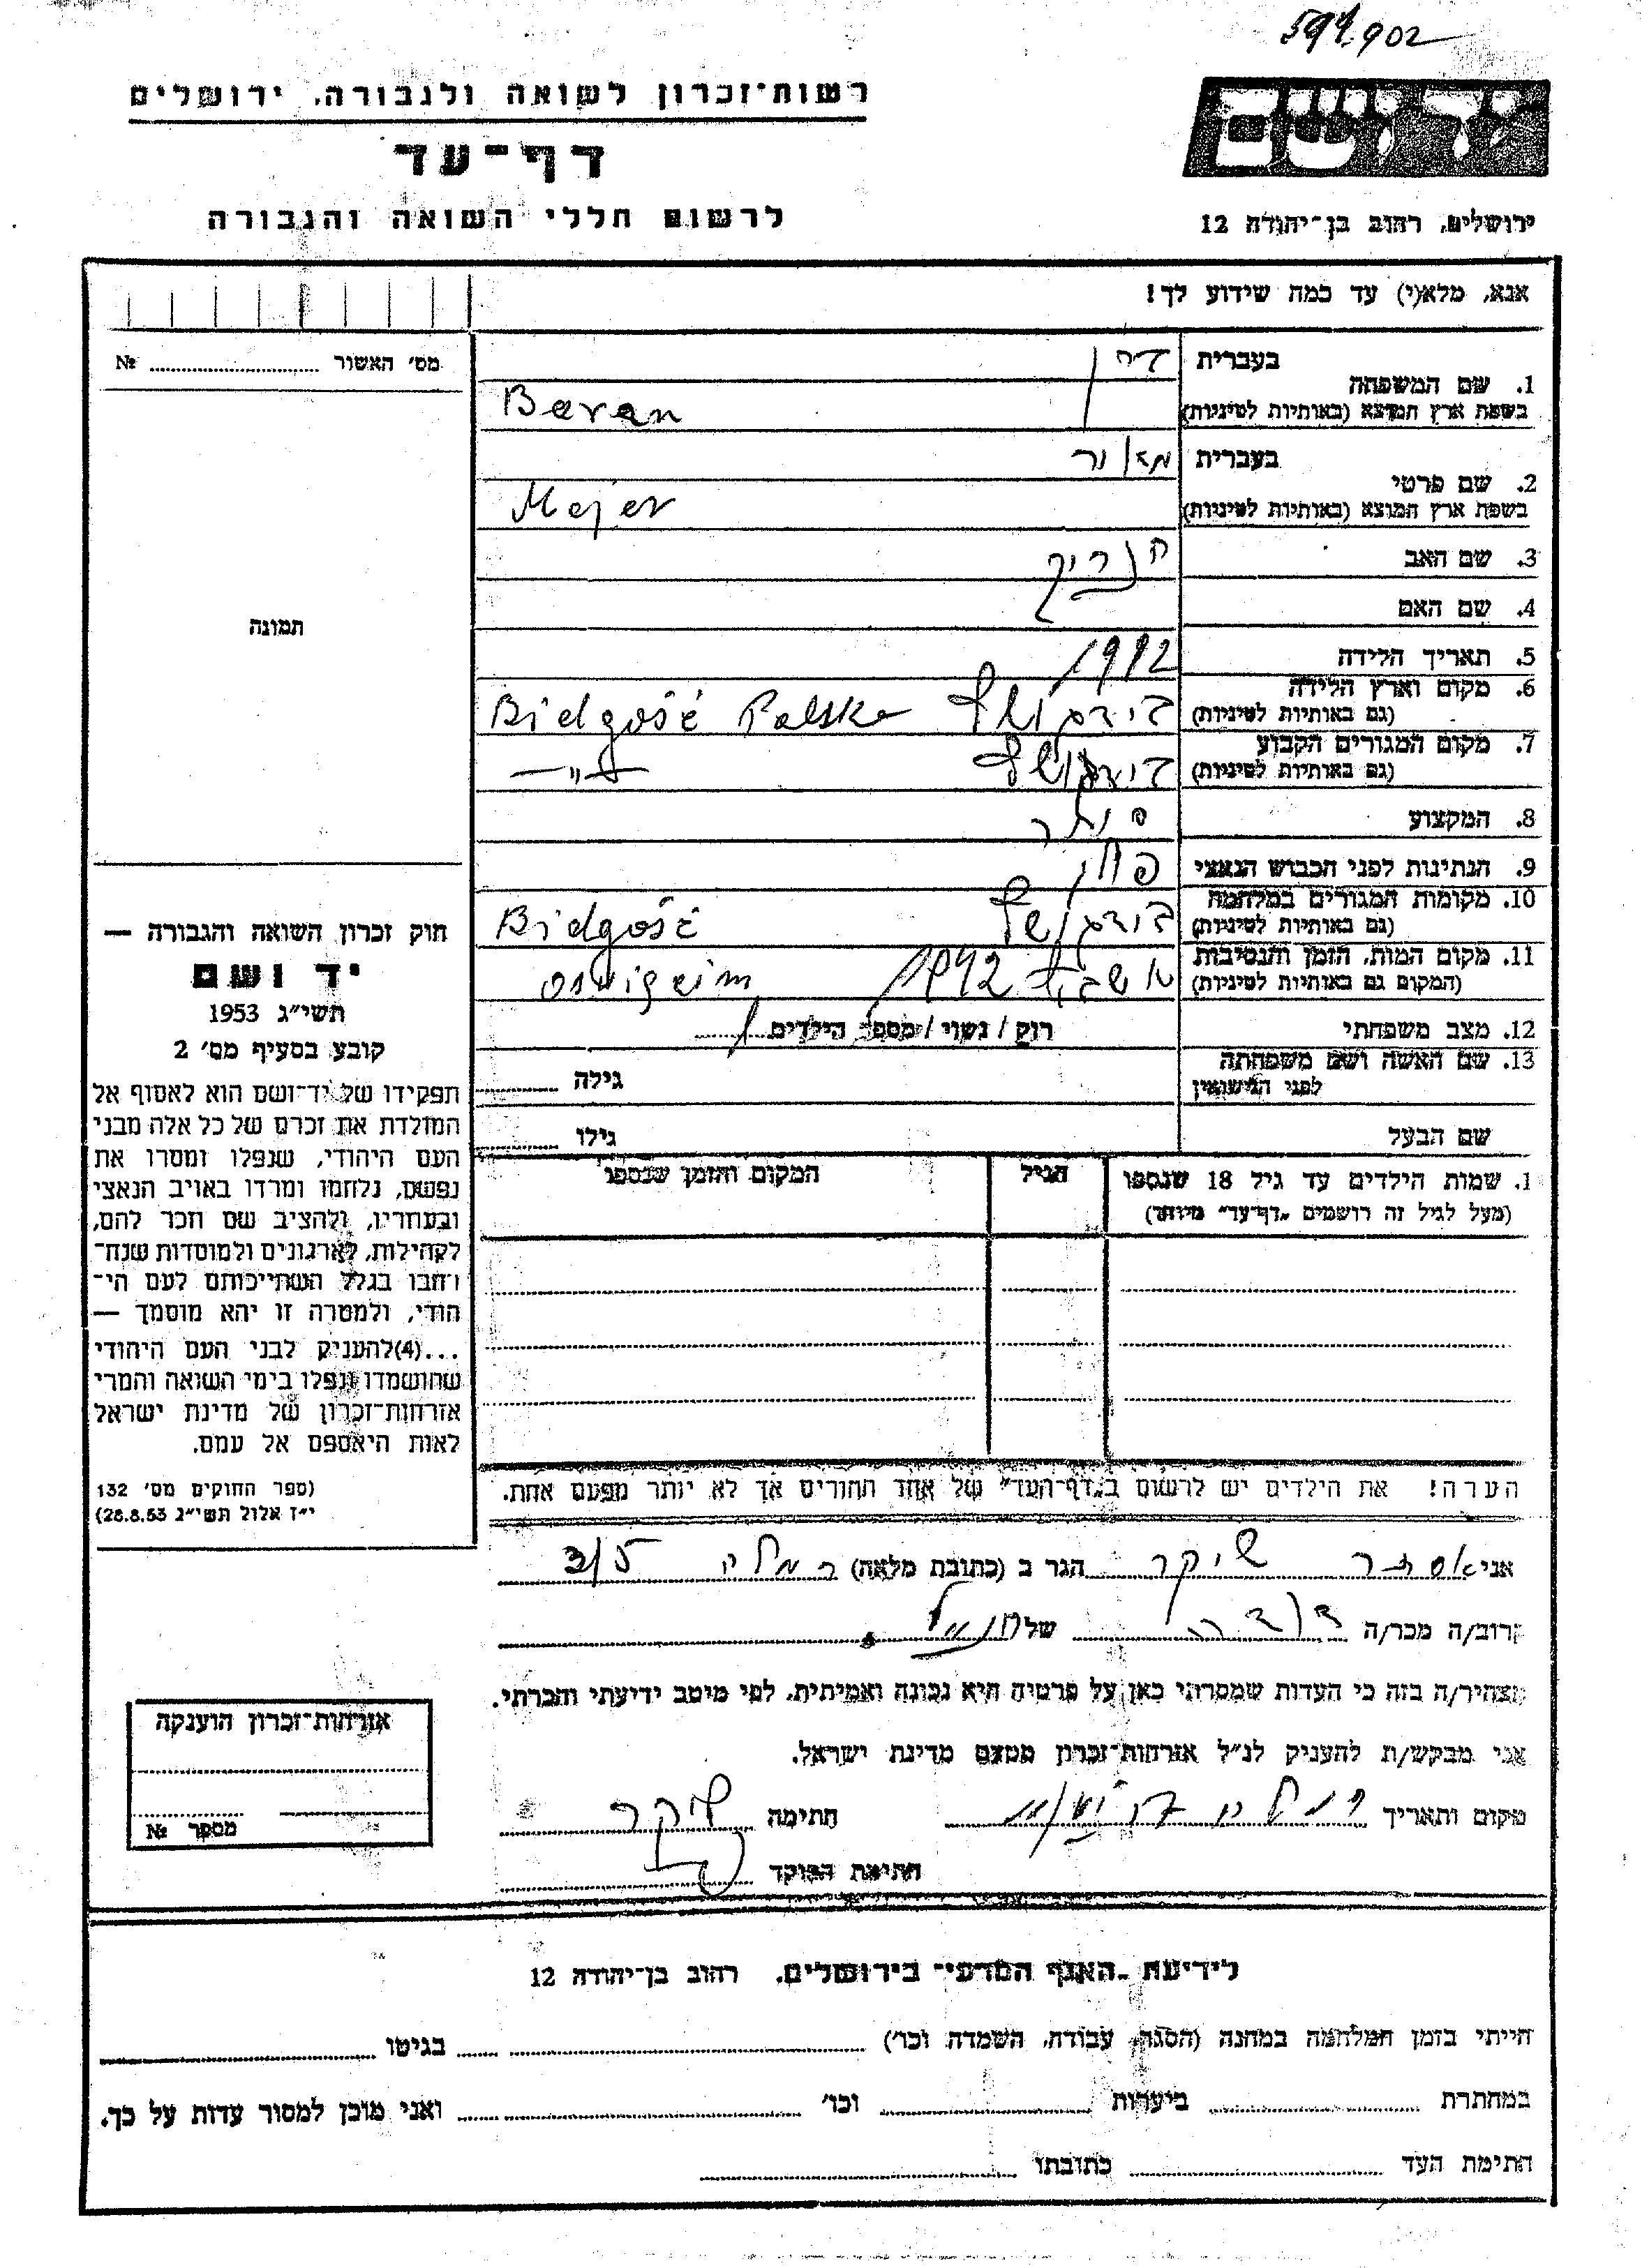 597.902
רשות־זכרון לשואה ולגבורה, ירושלים
יד ושם
דף־עד
לרשום חללי השואה והגבורה
ירושלים, רחוב בן־יהודה 12
אנא, מלא(י) עד כמה שידוע לך!
מס' האשור № 
1. שם המשפחה
בעברית
בשפת ארץ המוצא (באותיות לטיניות) Baran
2. שם פרטי
בעברית
בשפת ארץ המוצא (באותיות לטיניות) Majer
3. שם האב
4. שם האם
תמונה
5. תאריך הלידה 1912
6. מקום וארץ הלידה
(גם באותיות לטיניות) Bidgość Polska
7. מקום המגורים הקבוע
(גם באותיות לטיניות) —"—
8. המקצוע סוחר
9. הנתינות לפני הכבוש הנאצי
10. מקומות המגורים במלחמה
(גם באותיות לטיניות) Bidgość
11. מקום המות, הזמן והנסיבות
(המקום גם באותיות לטיניות) 1942
12. מצב משפחתי רוק / נשוי / מספר הילדים
13. שם האשה ושם משפחתה
לפני הנישואין גילה
שם הבעל גילו
1. שמות הילדים עד גיל 18 שנספו
(מעל לגיל זה רושמים "דף־עד" מיוחד)
הגיל
המקום והזמן שנספו
הערה! את הילדים יש לרשום ב"דף־העד" של אחד ההורים אך לא יותר מפעם אחת.
חוק זכרון השואה והגבורה —
יד ושם
תשי״ג 1953
קובע בסעיף מס' 2
תפקידו של יד־ושם הוא לאסוף אל
המולדת את זכרם של כל אלה מבני
העם היהודי, שנפלו ומסרו את
נפשם, נלחמו ומרדו באויב הנאצי
ובעוזריו, ולהציב שם וזכר להם,
לקהילות, לארגונים ולמוסדות שנח־
רבו בגלל השתייכותם לעם הי־
הודי, ולמטרה זו יהא מוסמך —
...(4)להעניק לבני העם היהודי
שהושמדו ונפלו בימי השואה והמרי
אזרחות־זכרון של מדינת ישראל
לאות היאספם אל עמם.
(ספר החוקים מס' 132
י״ז אלול תשי״ג 28.8.53)
אני אסתר שיקר הגר ב (כתובת מלאה) רמלה 3/5
קרוב/ה מכר/ה של
מצהיר/ה בזה כי העדות שמסרתי כאן על פרטיה היא נכונה ואמיתית, לפי מיטב ידיעתי והכרתי.
אני מבקש/ת להעניק לנ״ל אזרחות־זכרון מטעם מדינת ישראל.
מקום ותאריך חתימה שיקר
חתימת הפוקד
אזרחות־זכרון הוענקה
מספר №
לידיעת "האגף המדעי" בירושלים, רחוב בן־יהודה 12
הייתי בזמן המלחמה במחנה (הסגר, עבודה, השמדה וכו') בגיטו
במחתרת ביערות וכו' ואני מוכן למסור עדות על כך.
חתימת העד כתובתו